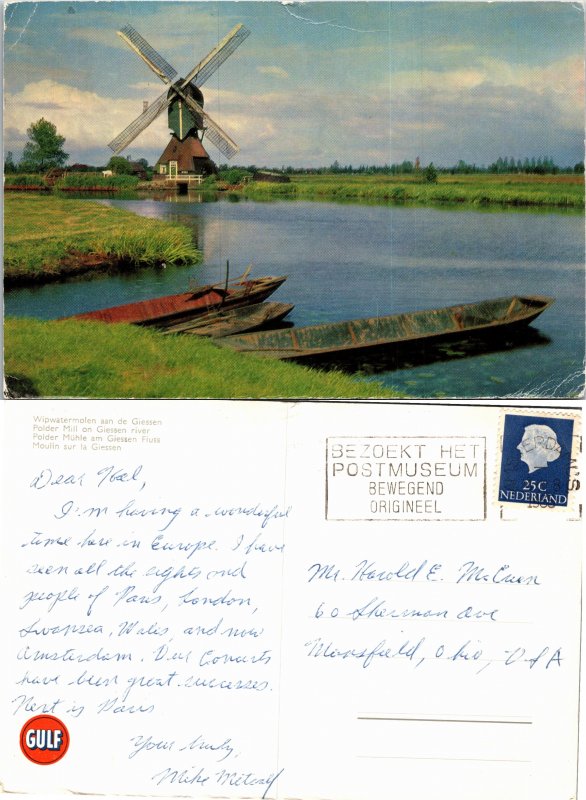 Wipwatermolen aan de Giessen
Polder Mill on Giessen river
Polder Mühle am Giessen Fluss
Moulin sur la Giessen
Dear Hal,
I'm having a wonderful
time here in Europe. I have
seen all the sights and
people of Paris, London,
Swansea, Wales, and now
Amsterdam. Our Concerts
have been great successes.
Next is Paris
Your truly,
Mike Metcalf
GULF
BEZOEKT HET
POSTMUSEUM
BEWEGEND
ORIGINEEL
25C
NEDERLAND
Mr. Harold E. McCuen
60 Sherman Ave
Mansfield, Ohio, USA